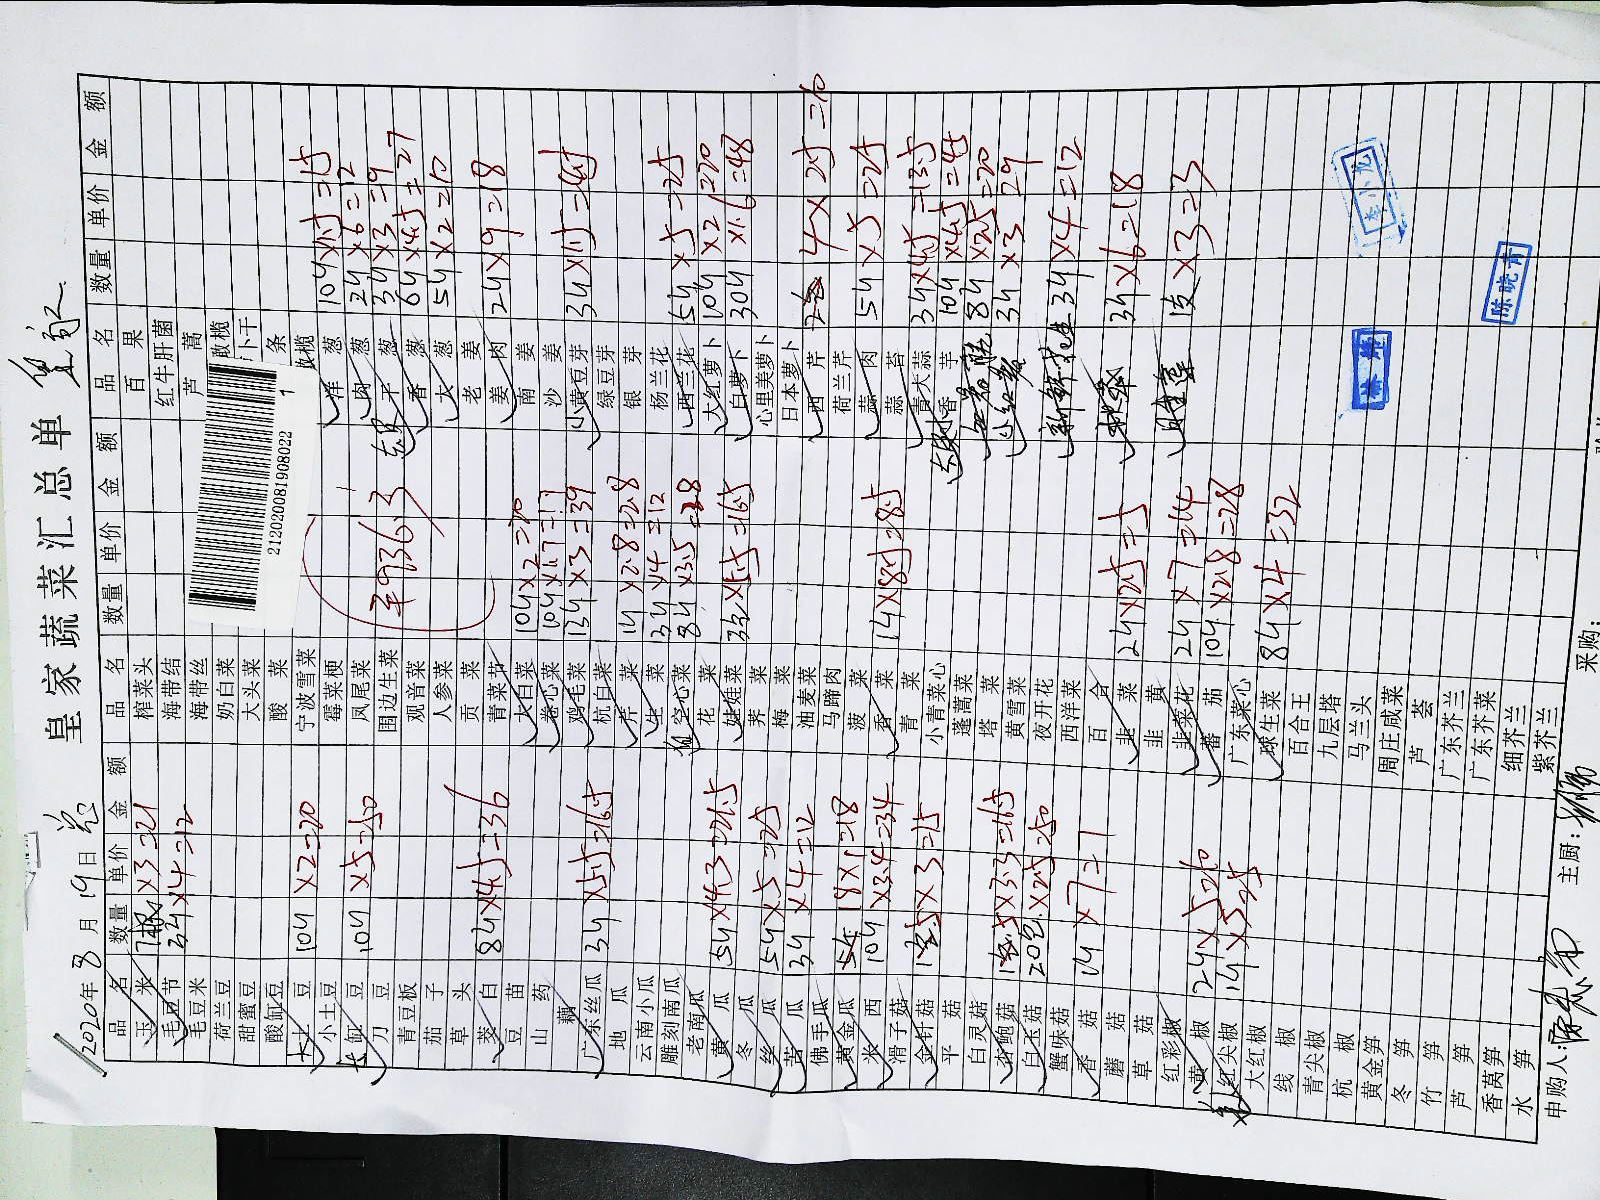 皇家蔬菜汇总单
2020年8月19日
品名 数量 单价 金额 品名 数量 单价 金额 品名 数量 单价 金额
玉米 ×3=21 榨菜头 百果
毛豆节 3斤×4=12 海带结 红牛肝菌
毛豆米 海带丝 芦蒿
荷兰豆 奶白菜 橄榄
甜蜜豆 大头菜 卜干
酸缸豆 酸菜 条
大土豆 10斤×2=20 宁波雪菜 橄榄
小土豆 霉菜梗 洋葱 10斤×1.5=15
缸豆 10斤×5=50 凤尾菜 肉葱 2斤×6=12
刀豆 围边生菜 干葱 3斤×3=9
青豆板 观音菜 香葱 6斤×4.5=27
茄子 人参菜 大葱 5斤×2=10
草头 贡菜 老姜
茭白 8斤×4.5=36 青菜节 姜肉 2斤×9=18
豆苗 大白菜 10斤×2=20 南姜
山药 卷心菜 10斤×1.7=17 沙姜
藕 鸡毛菜 13斤×3=39 小黄豆芽 3斤×1.5=4.5
广东丝瓜 3斤×5.5=16.5 杭白菜 绿豆芽
地瓜 芹菜 1斤×2.8=2.8 银芽
云南小瓜 生菜 3斤×4=12 杨兰花
雕刻南瓜 空心菜 8斤×3.5=28 西兰花 5斤×5=25
老南瓜 花菜 大红萝卜 10斤×2=20
黄瓜 5斤×4.3=21.5 娃娃菜 3×5.5=16.5 白萝卜 30斤×1.6=48
冬瓜 荠菜 心里美萝卜
丝瓜 5斤×5=25 梅菜 日本萝卜
苦瓜 3斤×4=12 油麦菜 西芹 4×2.5=10
佛手瓜 马蹄肉 荷兰芹
黄金瓜 18×1=18 菠菜 蒜肉 5斤×5=25
米西 10斤×3.4=34 香菜 1斤×8.5=8.5 蒜苔
滑子菇 青菜 青大蒜 3斤×4.5=13.5
金针菇 5×3=15 小青菜心 小香芋 10斤×4.5=45
平菇 蓬蒿菜 8斤×2.5=20
白灵菇 塔菜 3斤×3 29
杏鲍菇 5×3.3=16.5 黄雪菜
白玉菇 20包×2.5=50 夜开花 3斤×4=12
蟹味菇 西洋菜
香菇 1斤×7=7 百合 3斤×6=18
蘑菇 韭菜 2斤×2.5=5
草菇 韭黄 ×3=3
红彩椒 韭菜花 2斤×7=14
黄椒 2斤×5=10 蕃茄 10斤×2.8=28
红尖椒 1斤×5=5 广东菜心
大红椒 球生菜 8斤×4=32
线椒 百合王
青尖椒 九层塔
杭椒 马兰头
黄金笋 周庄咸菜
冬笋 芦荟
竹笋 广东芥兰
芦笋 广东芥菜
香莴笋 细芥兰
水笋 紫芥兰
¥936.3
212020081908022 1
李小龙
陈晓青
申购人: 主厨: 采购: